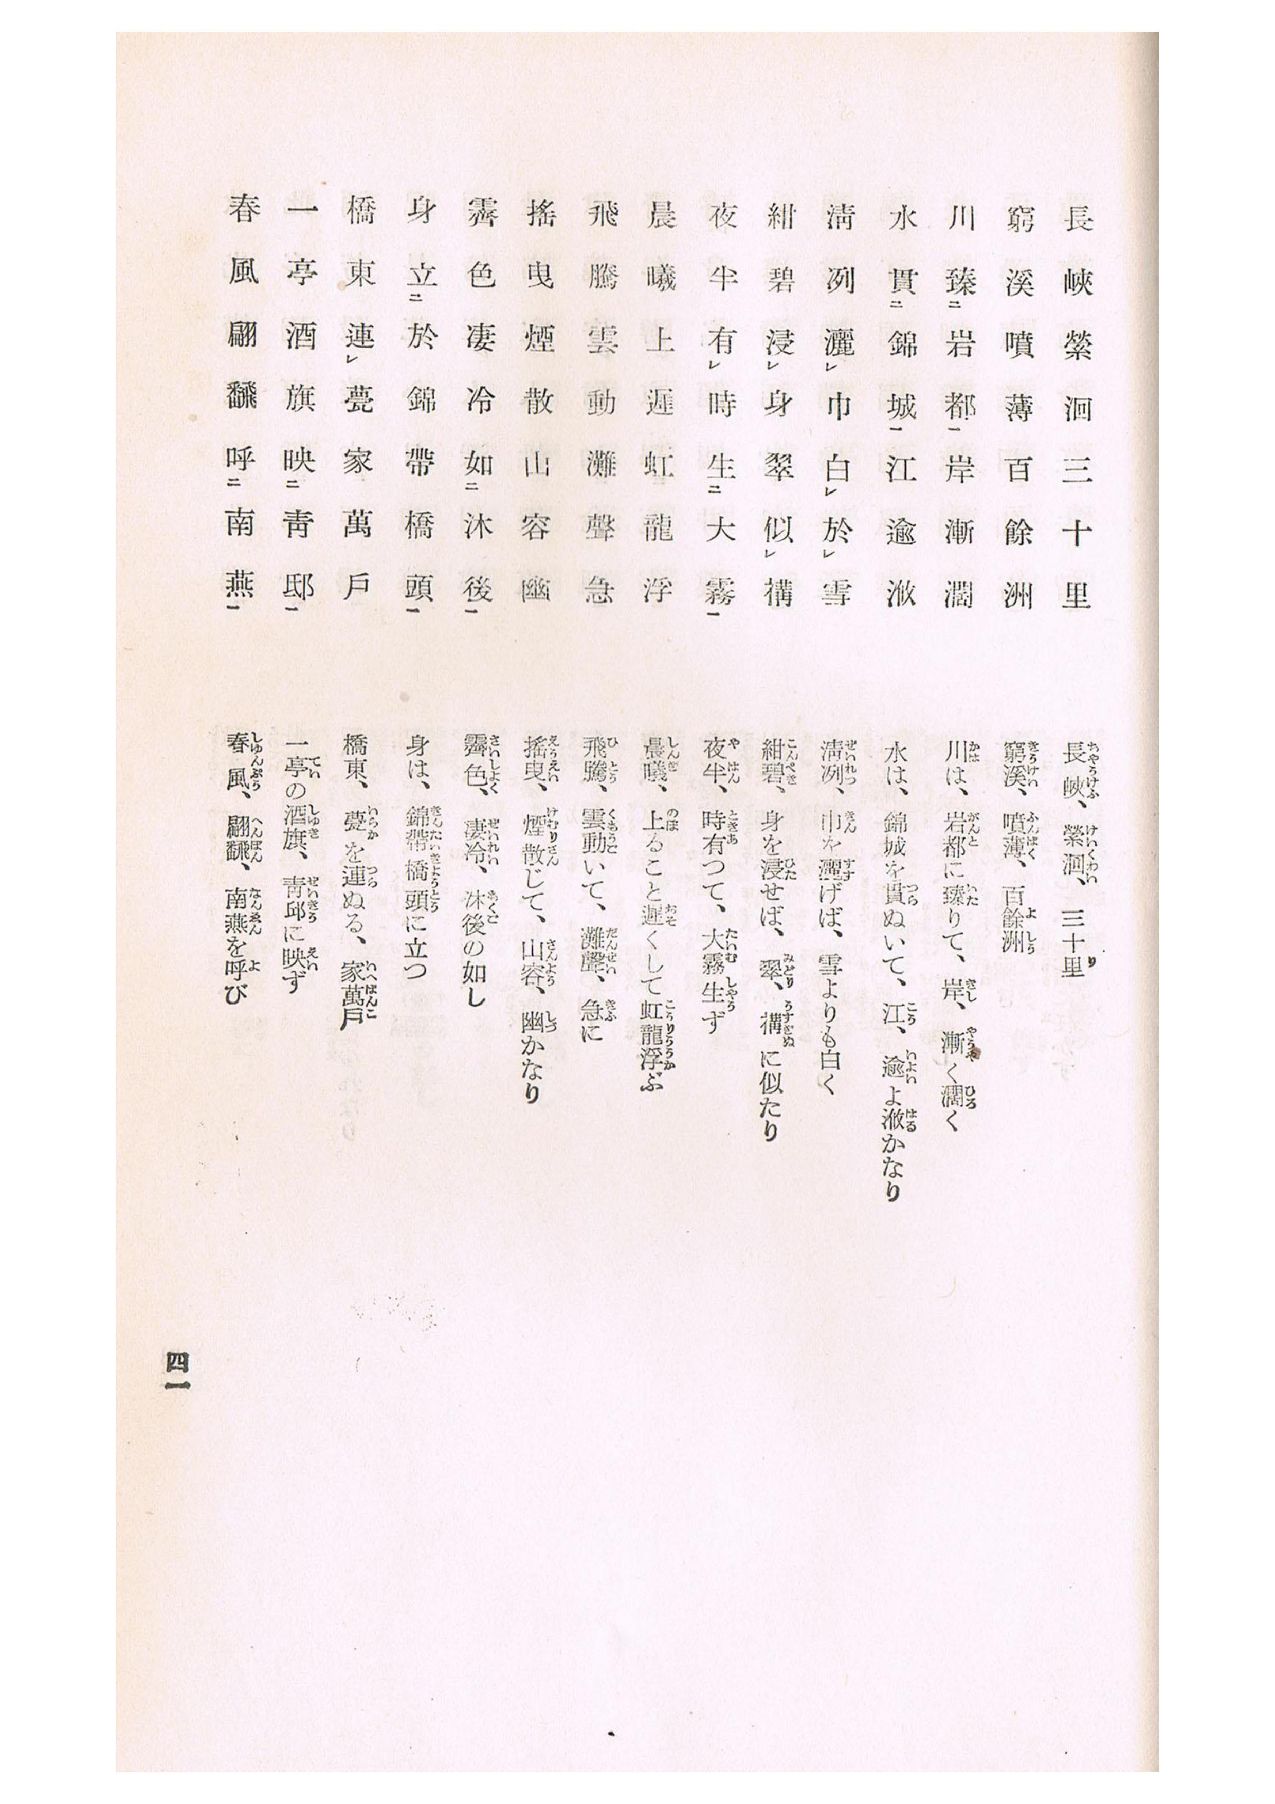 長峽縈洄三十里
窮溪噴薄百餘洲
川臻二岩都一岸漸濶
水貫二錦城一江逾瀓
淸冽灑レ巾白レ於レ雪
紺碧浸レ身翠似レ褠
夜半有レ時生二大霧一
晨曦上遲虹龍浮
飛騰雲動灘聲急
搖曳煙散山容幽
霽色凄冷如二沐後一
身立二於錦帶橋頭一
橋東連レ甍家萬戶
一亭酒旗映二靑邸一
春風翩飜呼二南燕一
長峽、縈洄、三十里
窮溪、噴薄、百餘洲
川は、岩都に臻りて、岸、漸く濶く
水は、錦城を貫ぬいて、江、逾よ瀓かなり
淸冽、巾を灑げば、雪よりも白く
紺碧、身を浸せば、翠、褠に似たり
夜半、時有つて、大霧生ず
晨曦、上ること遲くして虹龍浮ぶ
飛騰、雲動いて、灘聲、急に
搖曳、煙散じて、山容、幽かなり
霽色、凄冷、沐後の如し
身は、錦帶橋頭に立つ
橋東、甍を連ぬる、家萬戶
一亭の酒旗、靑邱に映ず
春風、翩飜、南燕を呼び
四一